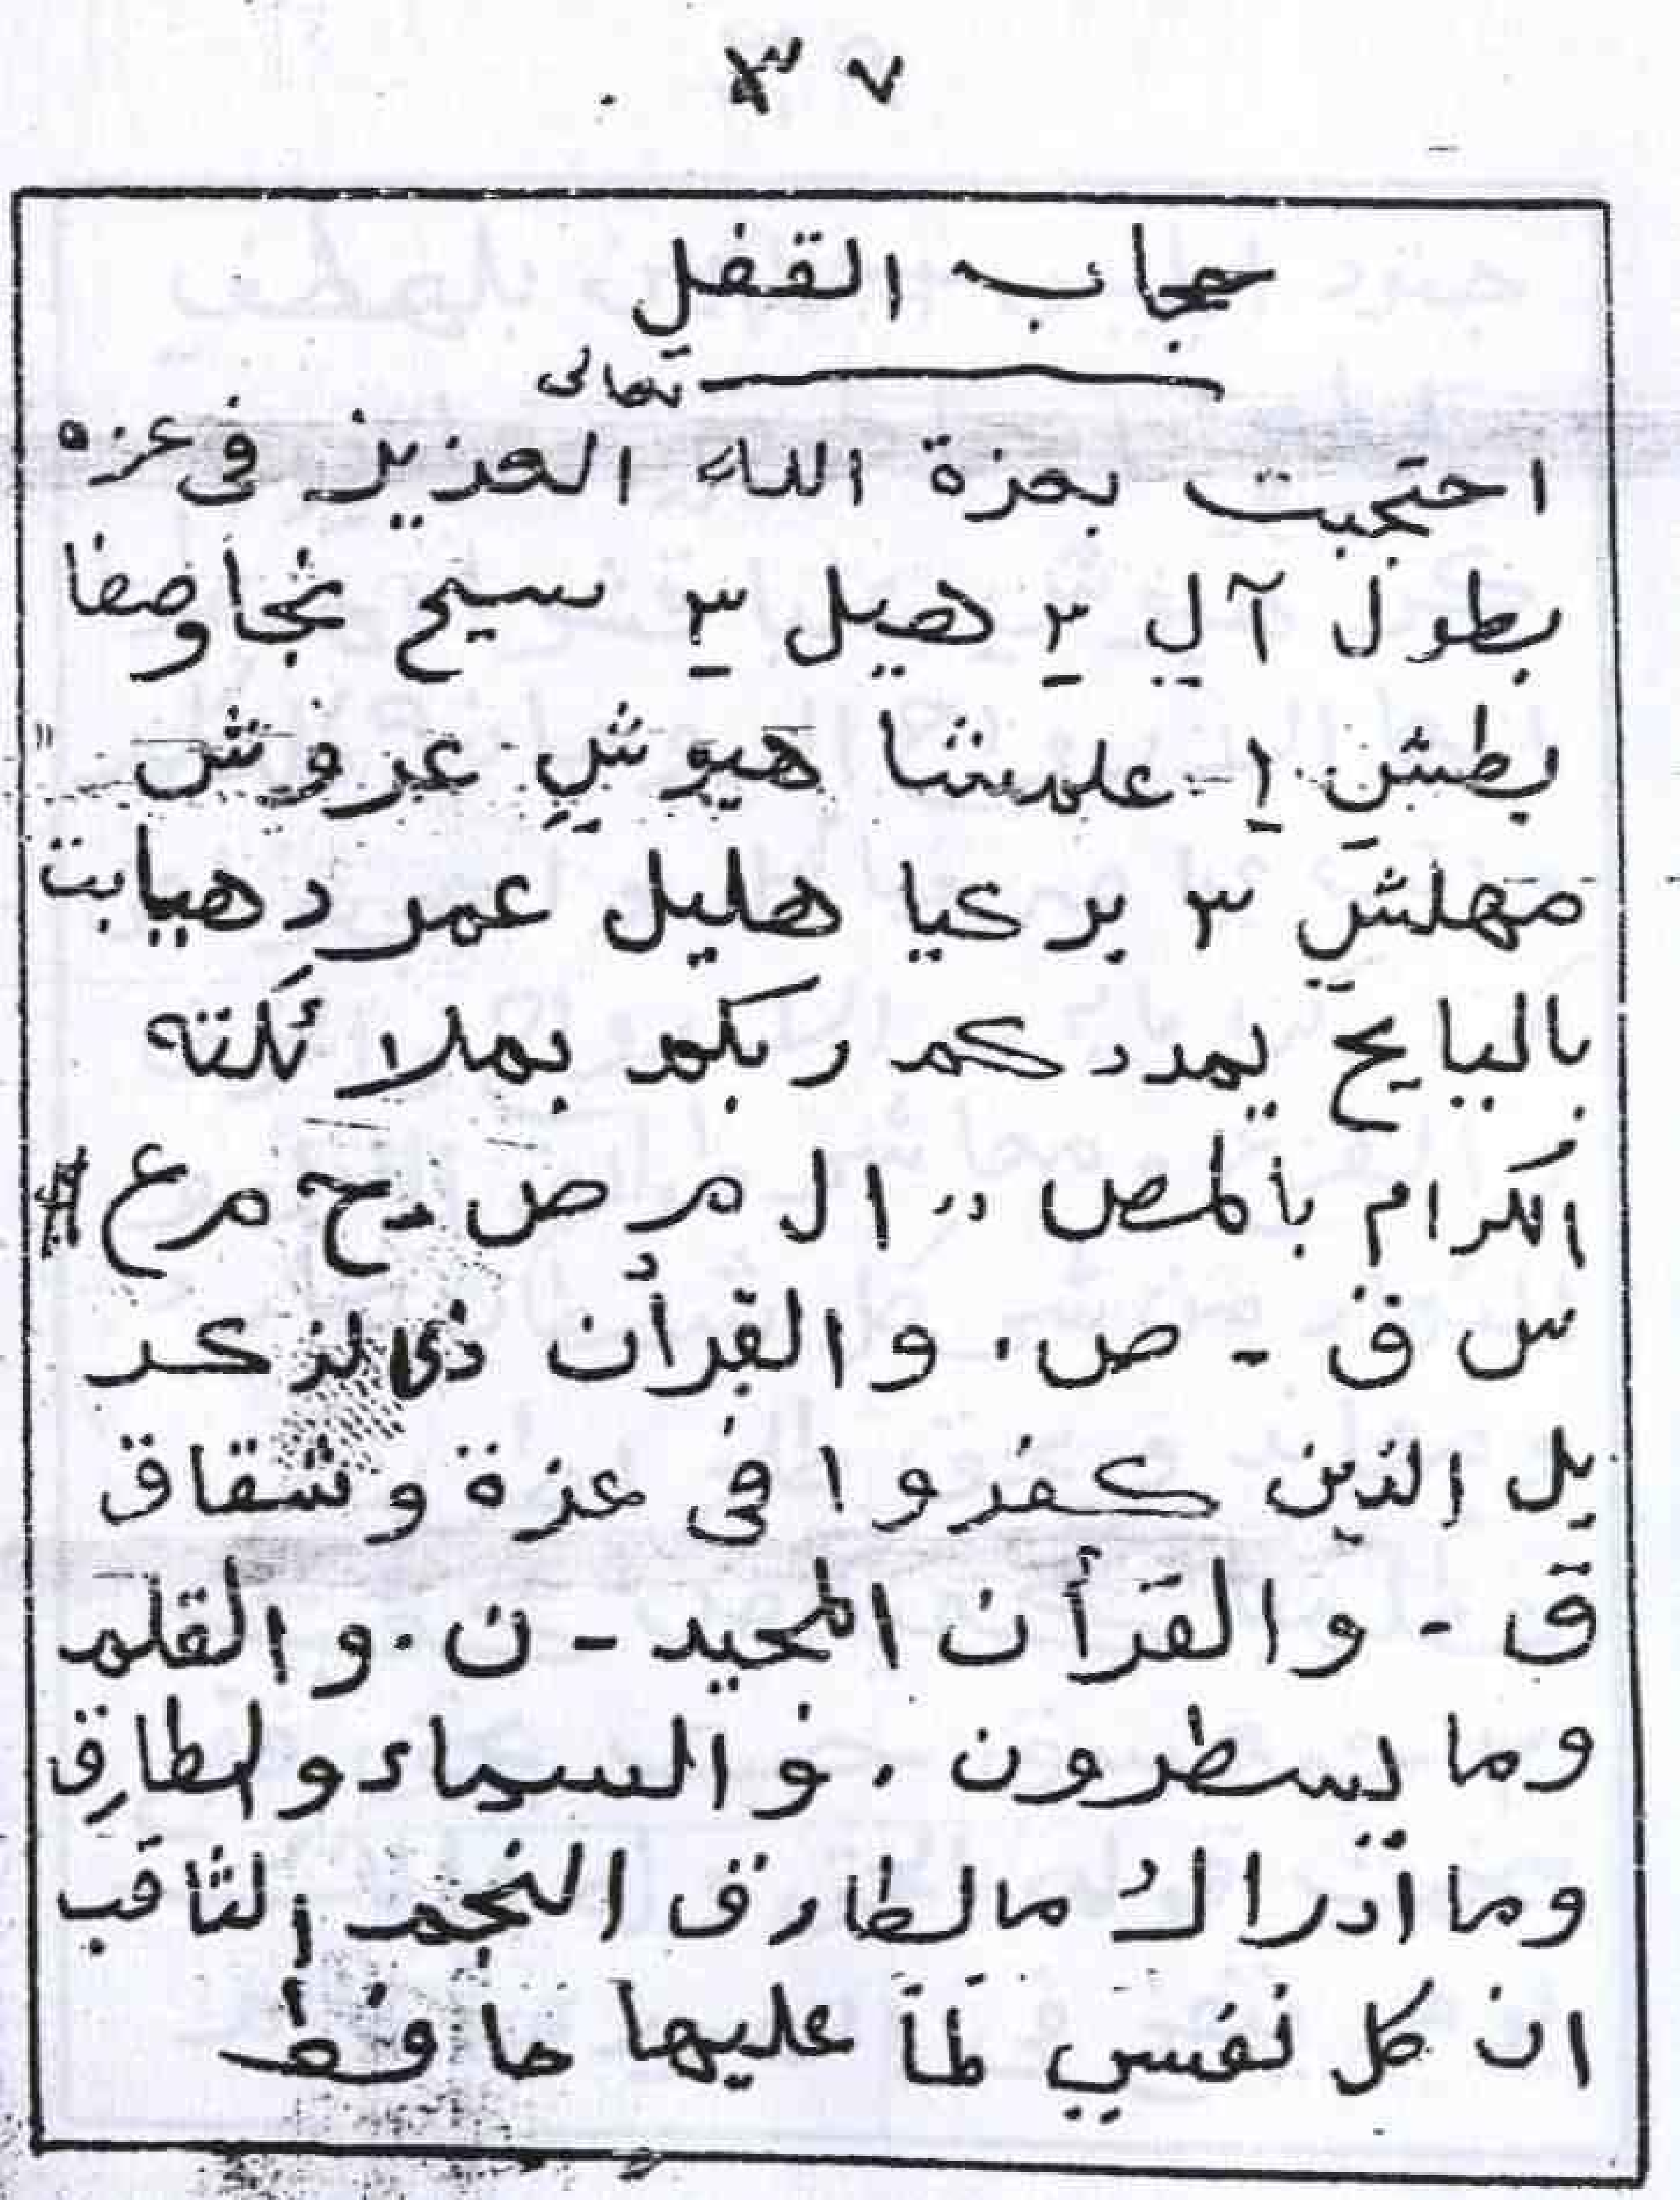 ٣٧
حجاب القفل
تعالى
احتجبت بعزة الله العزيز فى عزه
بطول آل ٣ هيل ٣ سيح
بطش هيوش عروش
مهلش ٣ بركيا هليل عمر
يمددكم ربكم بملائكته
الكرام بالمص ال م ص ح م ع
س ق - ص . والقرأن ذى الذكر
بل الذين كفروا فى عزة وشقاق
ق - والقرأن المجيد - ن . والقلم
وما يسطرون . والسماء والطارق
وما أدراك مالطارق النجم الثاقب
ان كل نفس لمّا عليها حافظ